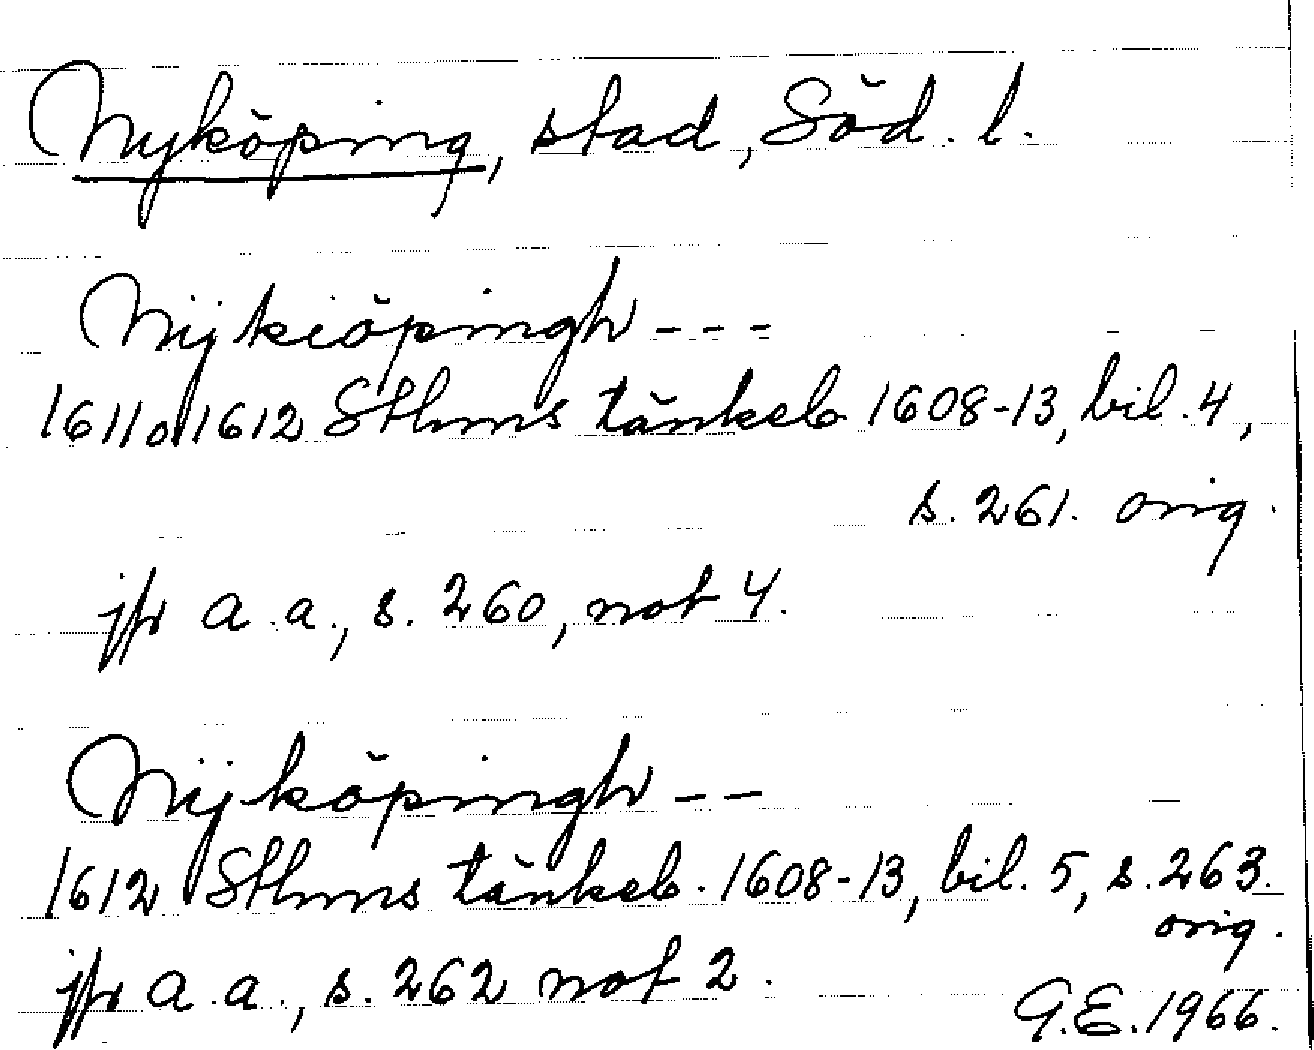 Nyköping, stad, Söd. l.
Nÿkiöpingh ---
1611 o 1612 Sthms tänkeb 1608-13, bil. 4,
s. 261. orig.
jfr a.a., s. 260, not 4.
Nÿköpingh --
1612 Sthms tänkeb. 1608-13, bil. 5, s. 263.
orig.
jfr a.a., s. 262 not 2.
G.E. 1966.